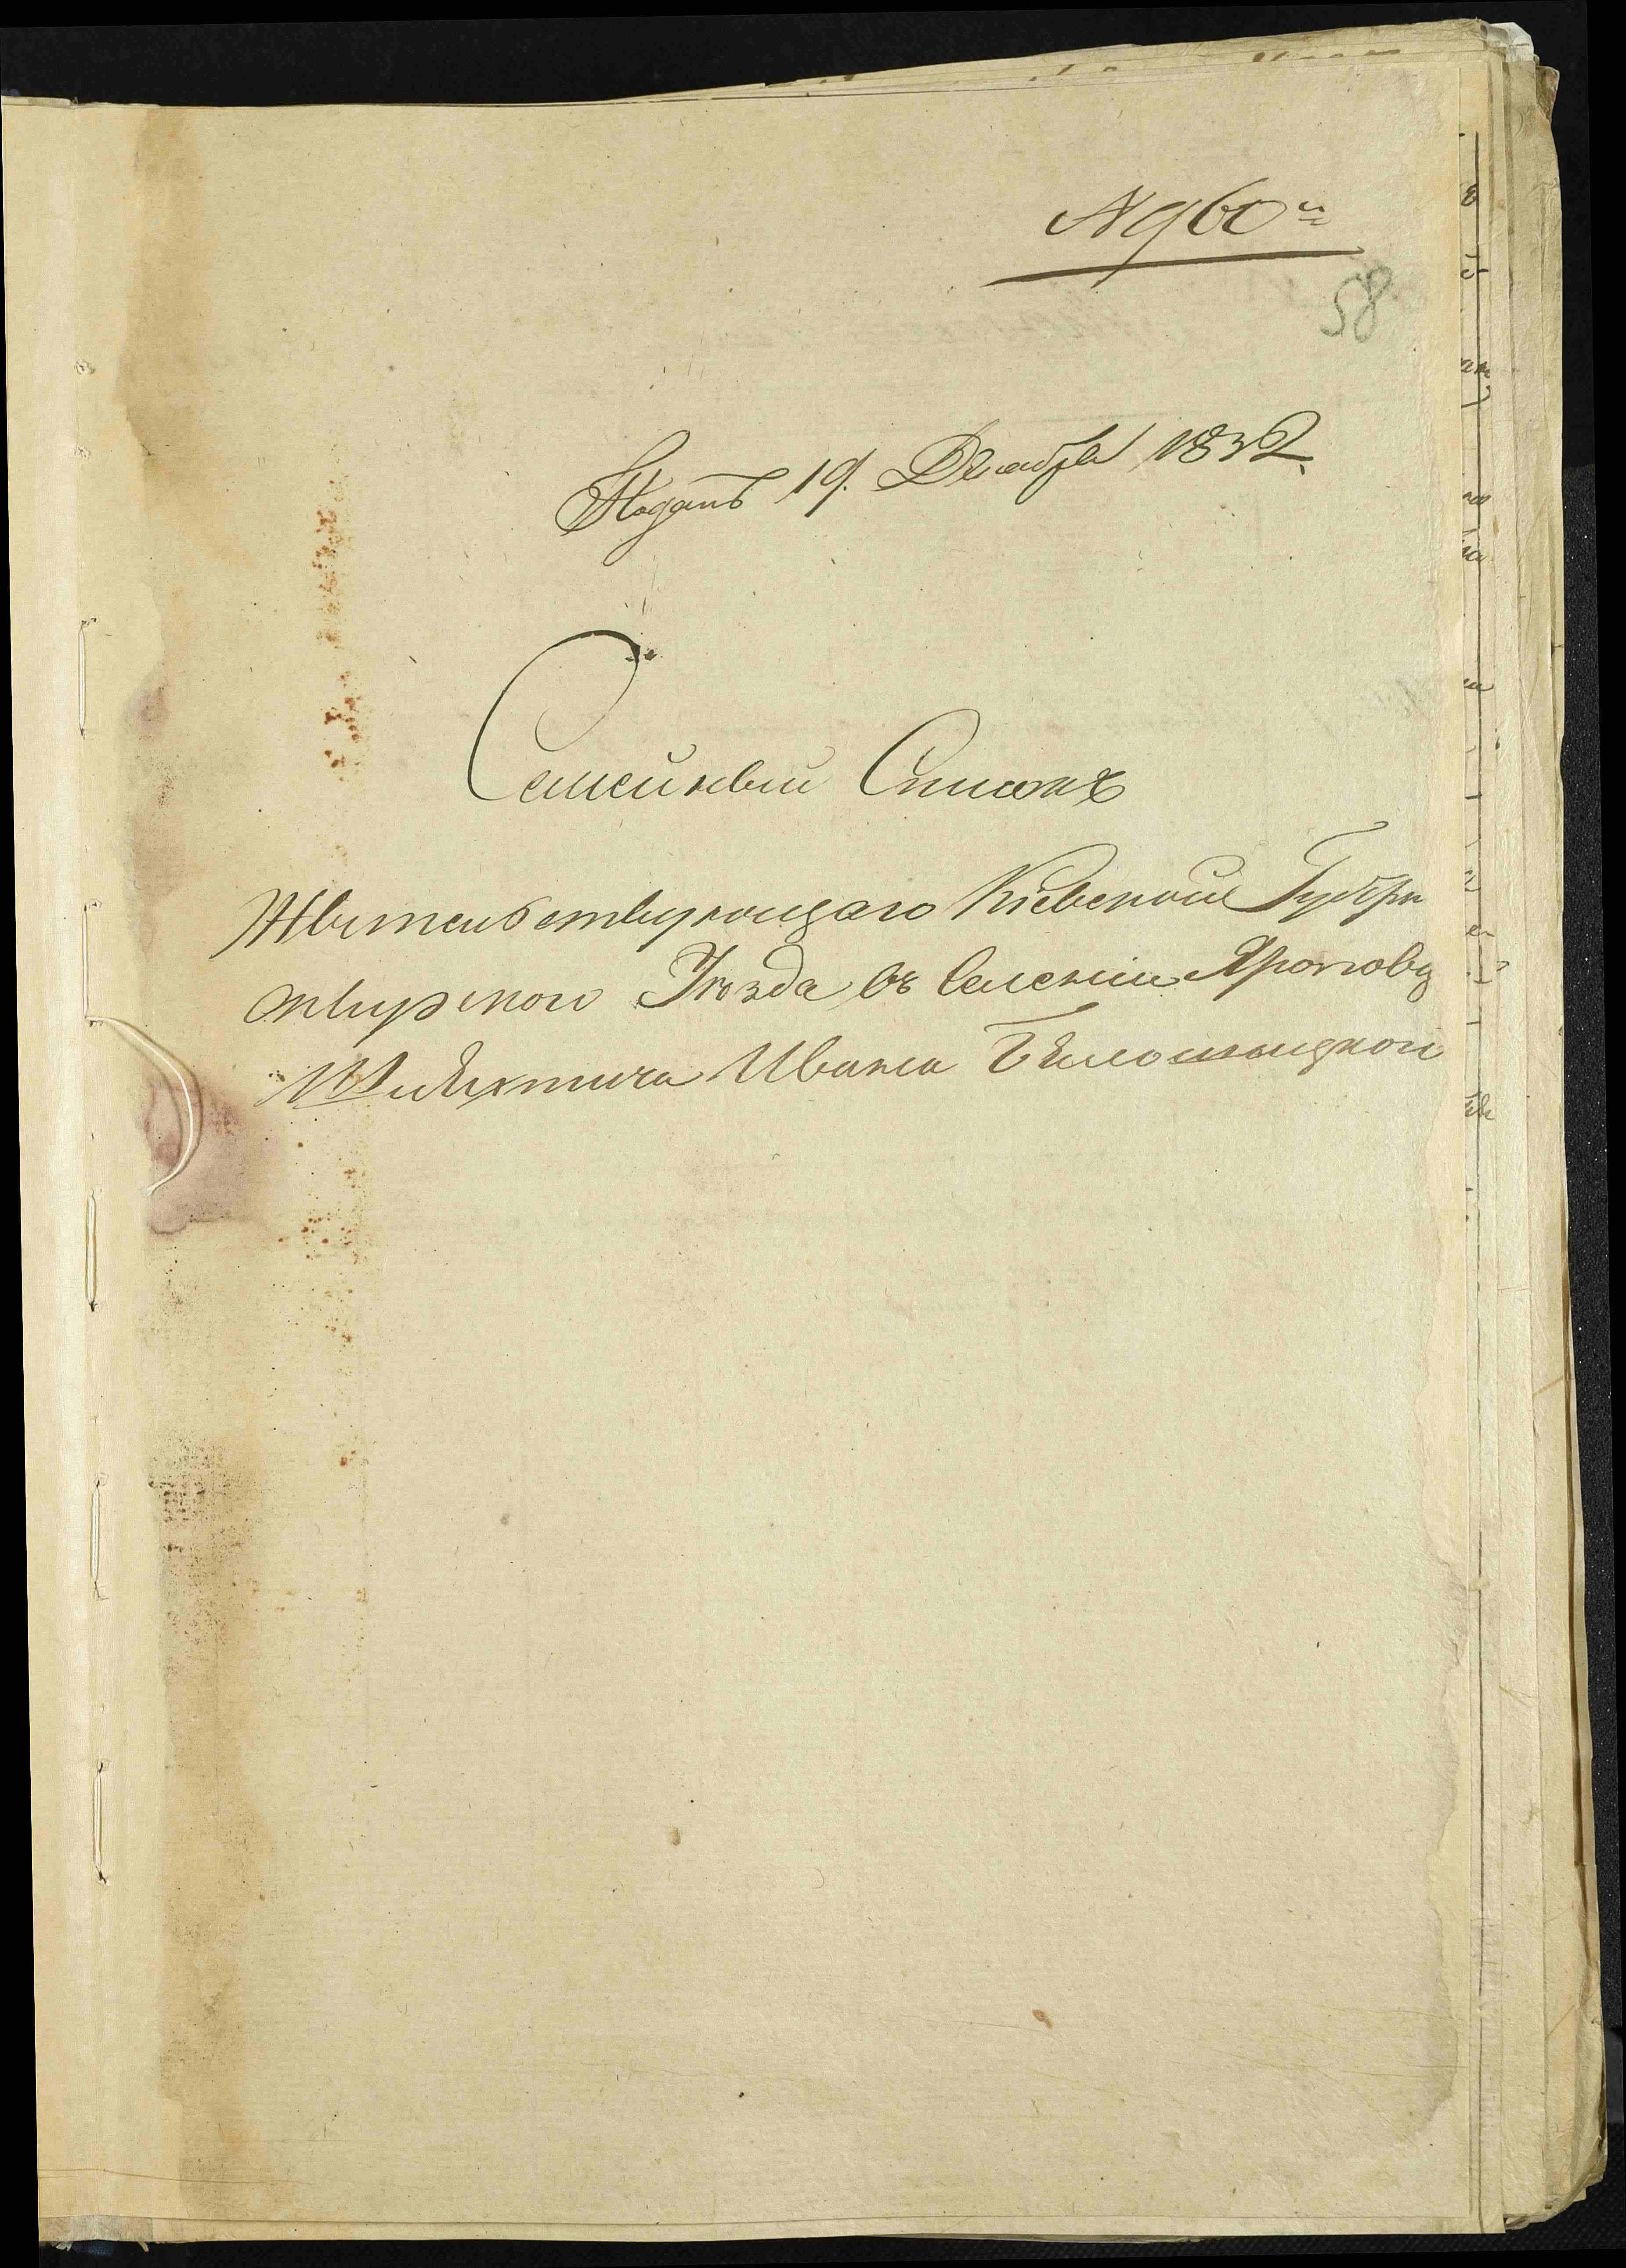 № 960й
58
Поданъ 19. Декабря 1832
Семейный Списокъ
Жытельствующаго Кіевской Губерн
сквирского Уезда въ Селеніи Яроповц
Шляхтича Ивана Бѣлошыцкои